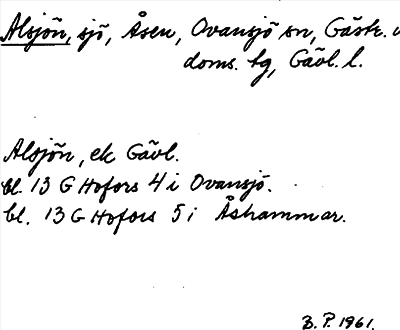 Alsjön, sjö, Åsen, Ovansjö sn, Gästr. v
doms. tg, Gävl. l.
Alsjön, ek Gävl.
bl. 13 G Hofors 4 i Ovansjö.
bl. 13 G Hofors 5 i Åshammar.
B. P. 1961.